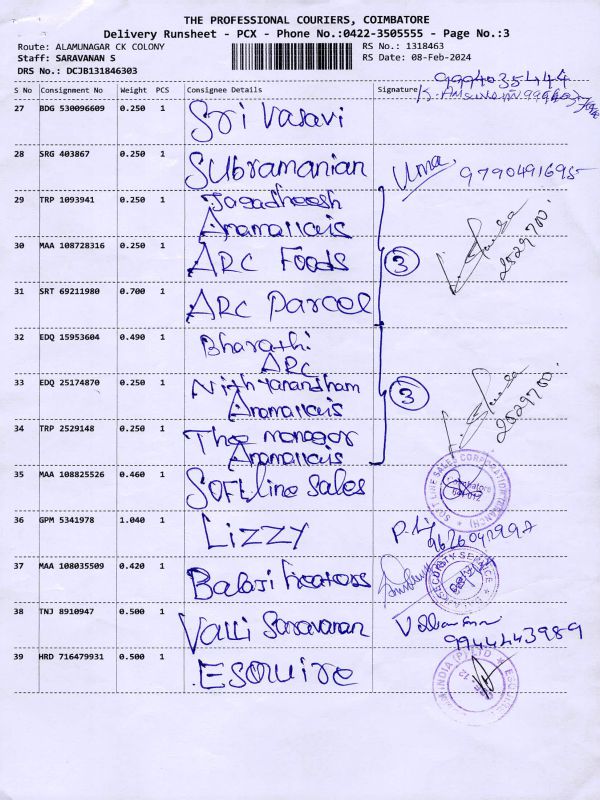 THE PROFESSIONAL COURIERS, COIMBATORE
Delivery Runsheet - PCX - Phone No.:0422-3505555 - Page No.:3
Route: ALAMUNAGAR CK COLONY
RS No.: 1318463
Staff: SARAVANAN S
RS Date: 08-Feb-2024
DRS No.: DCJB131846303
9994035444
S No Consignment No Weight PCS Consignee Details Signature
27 BDG 530096609 0.250 1 Sri Vasavi
28 SRG 403867 0.250 1 Subramanian Uma 9790491695
29 TRP 1093941 0.250 1 Jagadheesh
Anamallais
30 MAA 108728316 0.250 1 ARC Foods 3 2529700
31 SRT 69211980 0.700 1 ARC Parcel
32 EDQ 15953604 0.490 1 Bharathi
ARC
33 EDQ 25174870 0.250 1 Nithyanandham
Anamallais 3 2529700
34 TRP 2529148 0.250 1 The manager
Anamallais
35 MAA 108825526 0.460 1 Softline sales
36 GPM 5341978 1.040 1 Lizzy
9626042997
37 MAA 108035509 0.420 1 Balaji heaters
38 TNJ 8910947 0.500 1 Valli Saravanan
9944443989
39 HRD 716479931 0.500 1 ESQUIRE